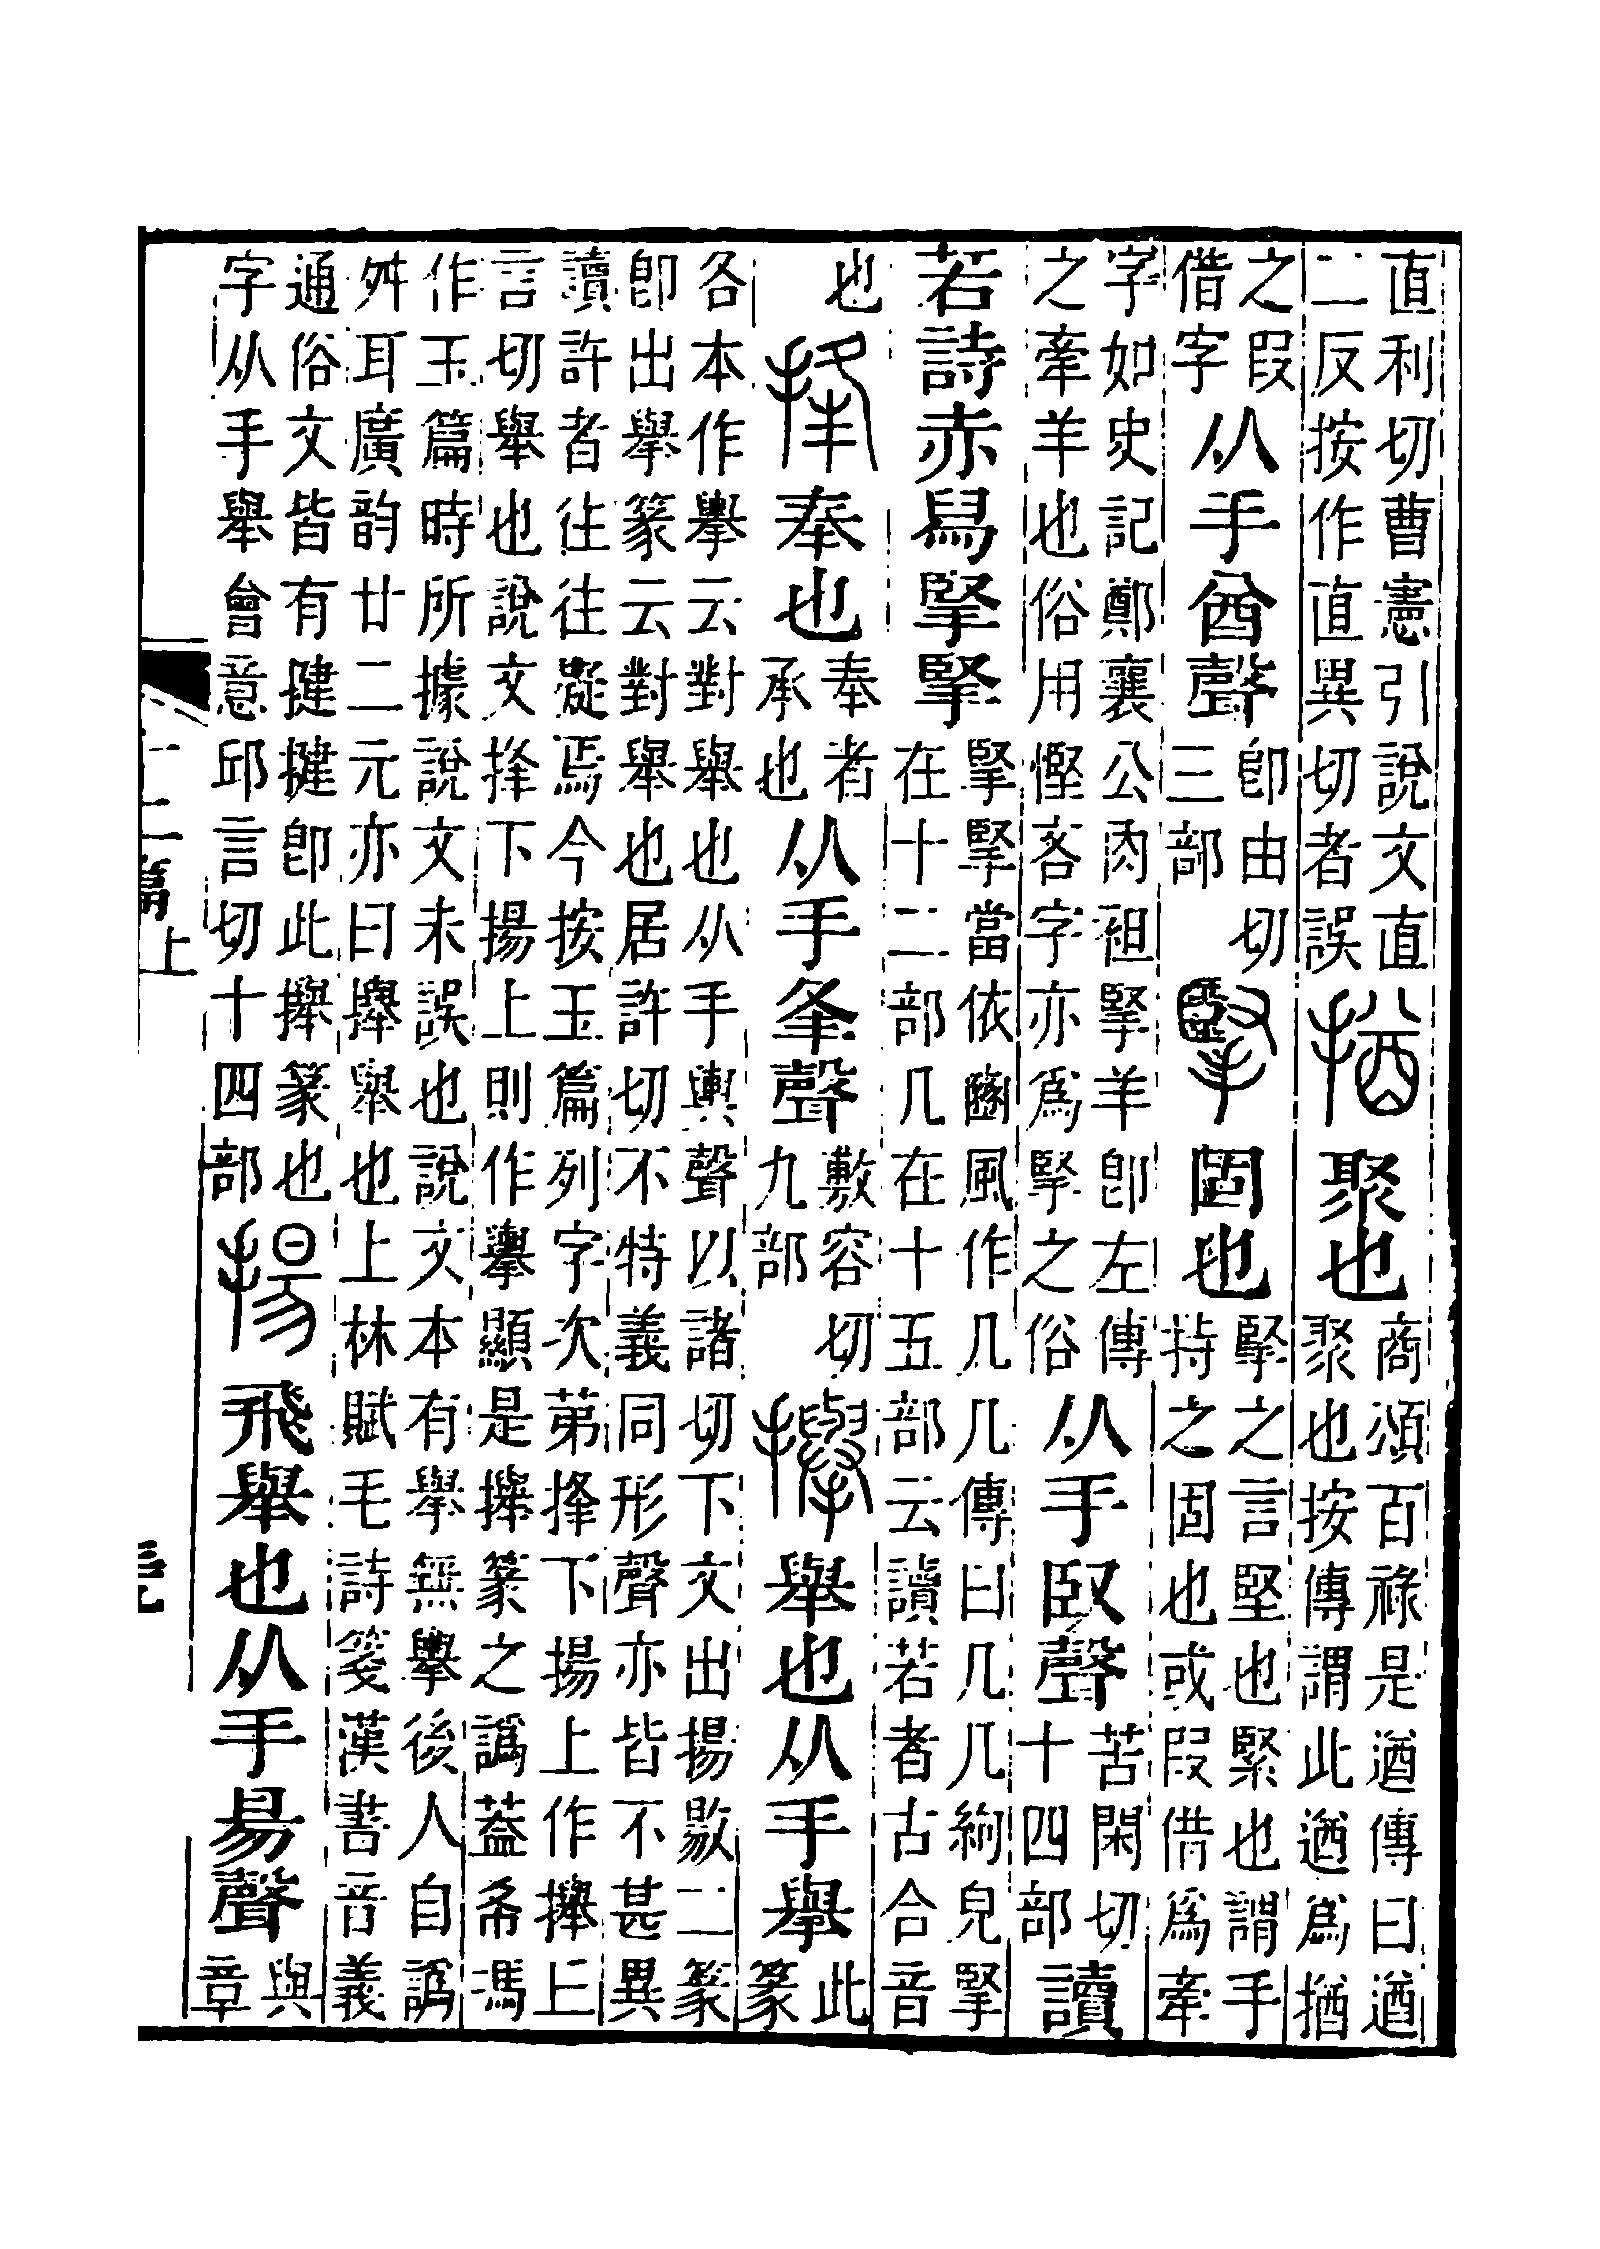 直利切曹憲引說文直二反按作直異切者誤揂聚也商頌百祿是遒傳曰遒聚也按傳謂此遒爲揂
之叚借字从手酋聲卽由切三部掔固也掔之言堅也緊也謂手持之固也或叚借爲牽
字如史記鄭襄公肉袒掔羊卽左傳之牽羊也俗用慳吝字亦爲掔之俗从手臤聲苦閑切十四部讀
若詩赤舄掔掔掔掔當依豳風作几几傳曰几几絇皃掔在十二部几在十五部云讀若者古合音
也捀奉也奉者承也从手夆聲敷容切九部㩮舉也从手舉此篆
各本作擧云對舉也从手輿聲以諸切下文出揚敭二篆卽出擧篆云對舉也居許切不特義同形聲亦皆不甚異
讀許者往往疑焉今按玉篇列字次第捀下揚上作㩮丘言切舉也說文捀下揚上則作擧顯是㩮篆之譌蓋希馮
作玉篇時所據說文未誤也說文本有舉無擧後人自譌舛耳廣韵廿二元亦曰㩮舉也上林賦毛詩箋漢書音義
通俗文皆有揵揵卽此㩮篆也字从手舉會意邱言切十四部揚飛舉也从手昜聲與章
十二篇上